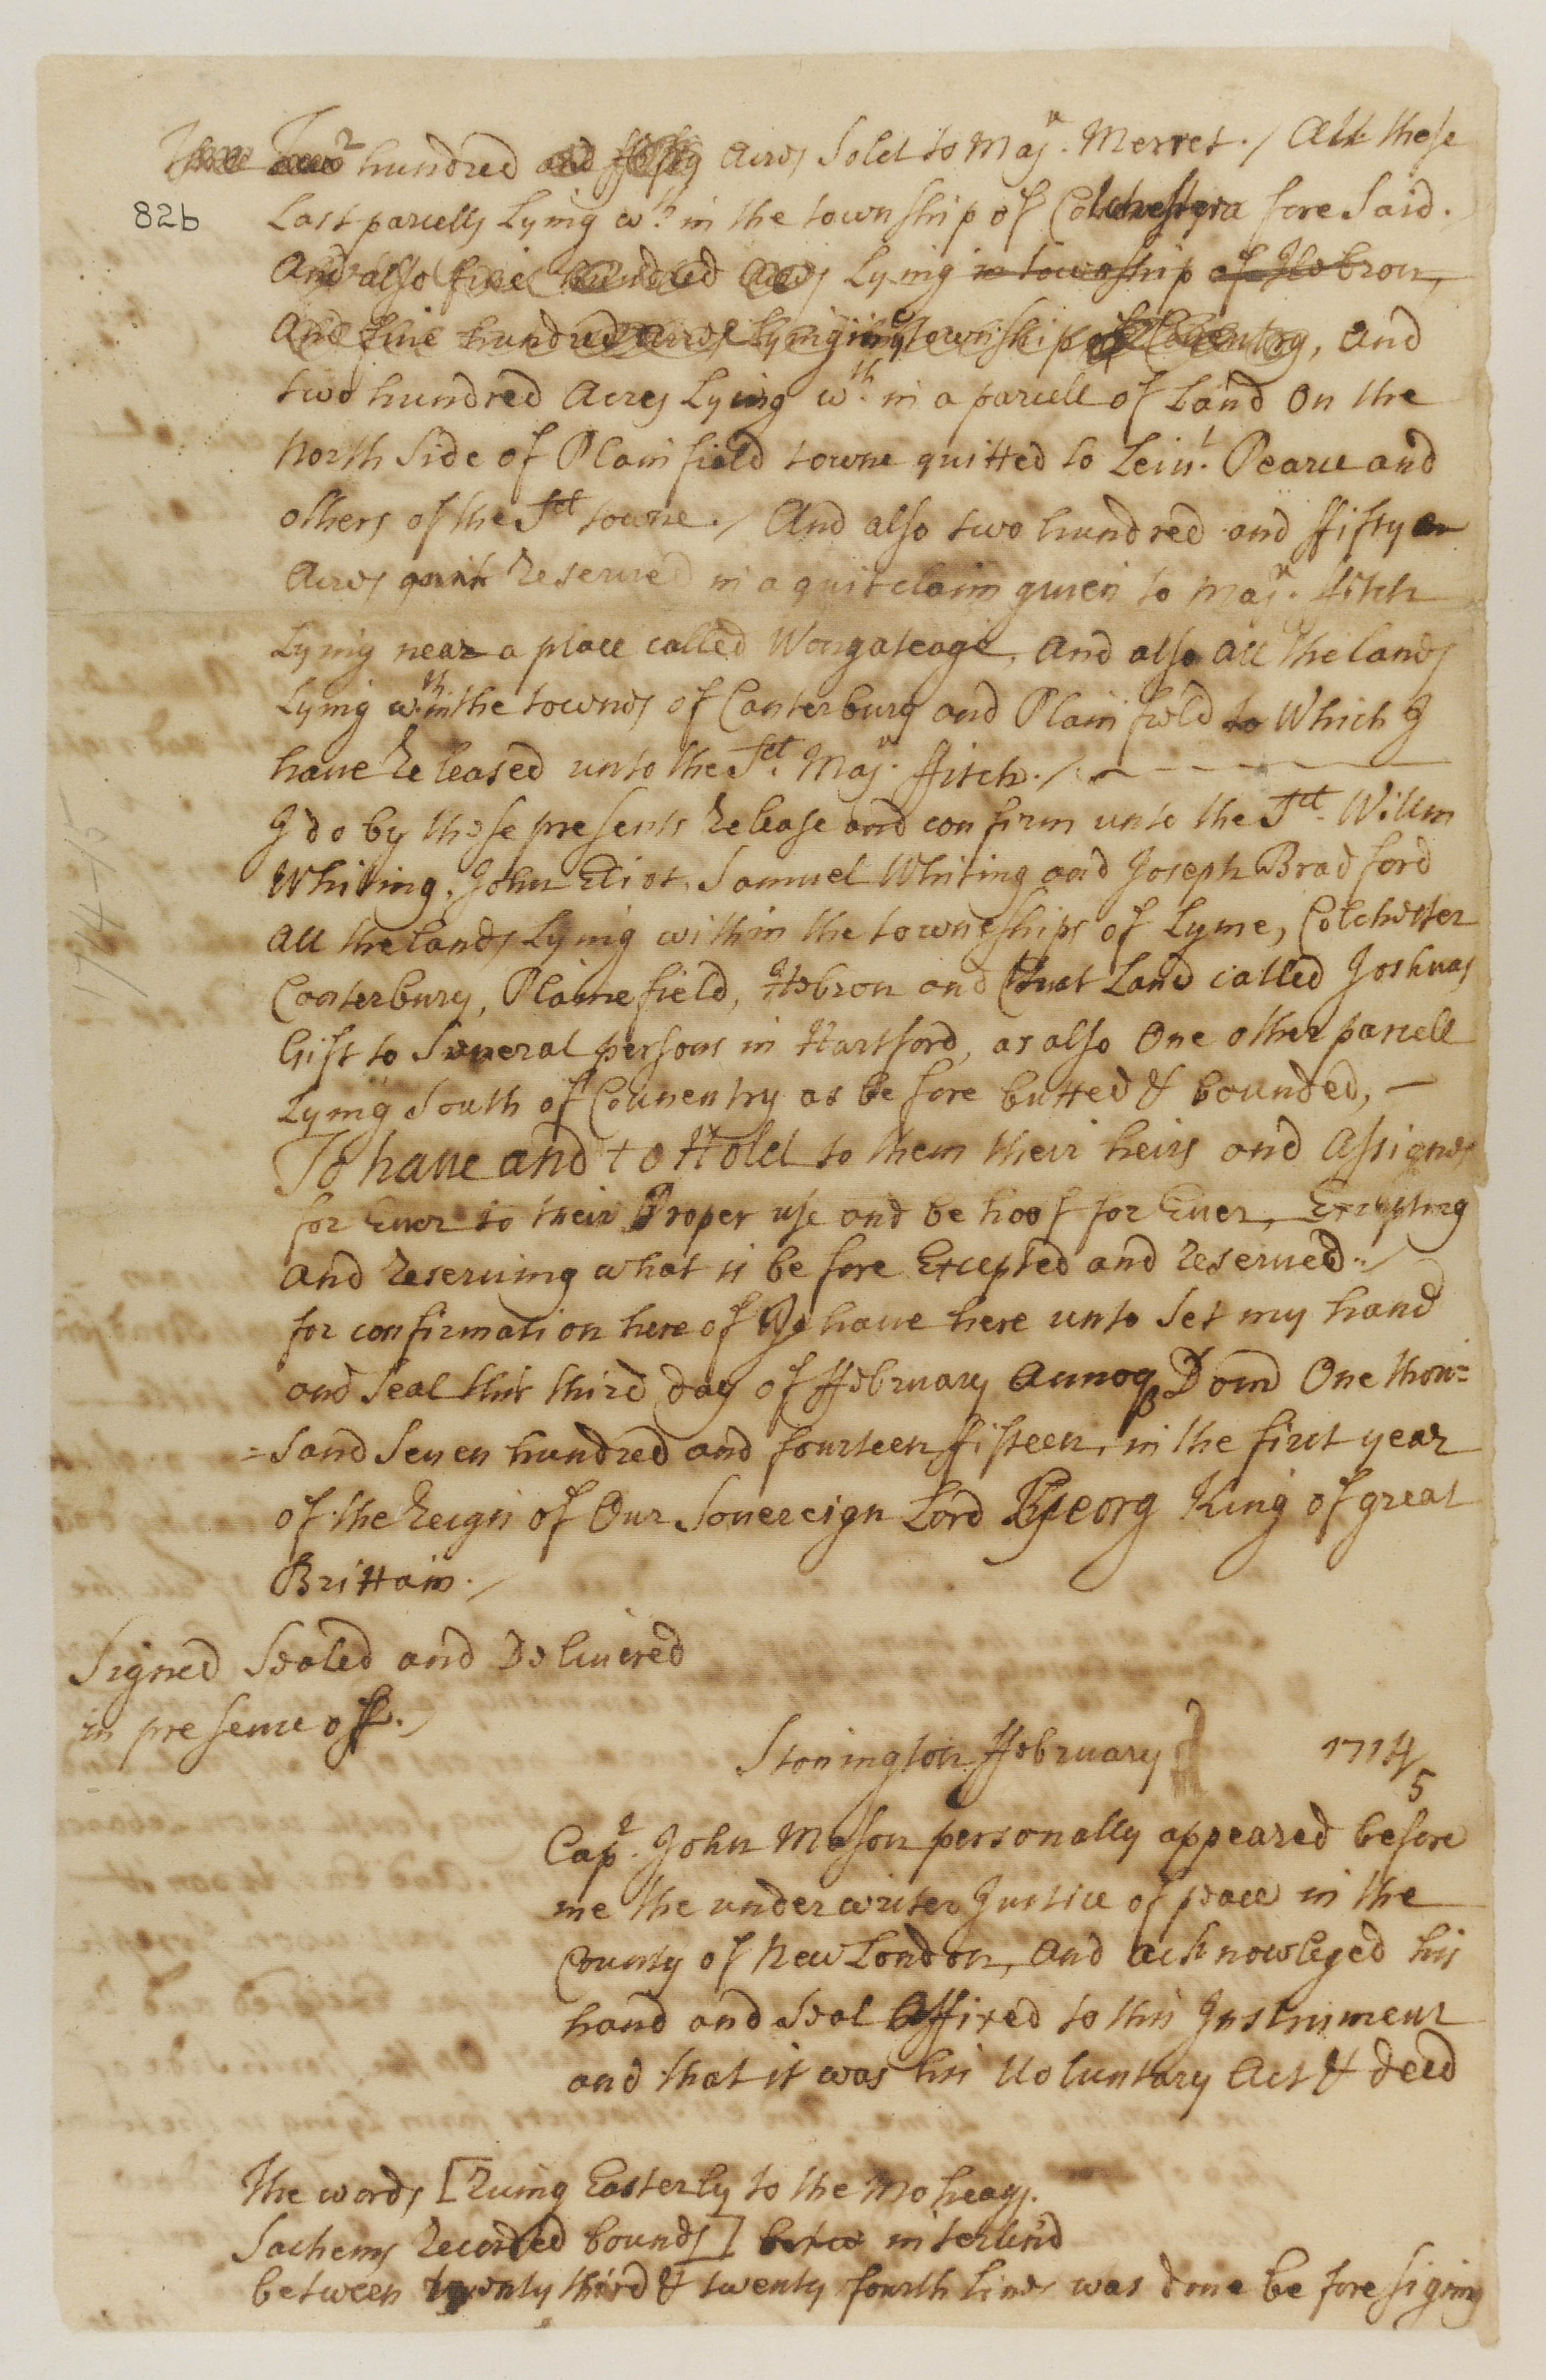 Two hundred and fifty acres Sold to Majr. Merret./ All these
82b
Last parcells Lying wth in the township of Colchester a fore Said.
And also five hundred acres Lying in township of Hebron,
And five hundred acres lying in ye township of Coventry, and
two hundred Acres Lying wth in a parcell of Land on the
North Side of Plainfield towne quitted to Leiut. Pearce and
others of the Sd towne./ And also two hundred and ffifty
Acres Reserved in a quitclaim given to Majr. ffitch
Lying near a place called Wongateage, and also all the lands
Lying wth in the townes of Canterbury and Plainfield to Which I
have Released unto the Sd. Majr. ffitch./
I do by these presents Release and confirm unto the Sd. Willm
Whiting, John Eliot, Samuel Whiting and Joseph Bradford
all the lands Lying within the towneships of Lyme, Colchester
Canterbury, Plainefield, Hebron and that Land called Joshuas
Gift to Several persons in Hartford, as also One other parcell
Lying South of Couventry as before butted & bounded,
To have and to Hold to them their heirs and Assignes
for Ever to their Proper use and behoof for Ever, Excepting
and Reserving what is before Excepted and Reserved./
for confirmation hereof I have here unto Set my hand
and Seal this third day of ffebruary Annoq Domd One thou=
=sand Seven hundred and fourteen fifteen, in the first year
of the Reign of Our Sovereign Lord Georg King of great
Brittain./
Signed Sealed and Delivered
in presence off./
Stonington ffebruary 1714/5
Capt. John Mason personally appeared before
me the underwriter Justice of peace in the
County of New London, and acknowleged his
hand and Seal Affixed to this Instrument
and that it was his Voluntary Act & deed
The words [Runing Easterly to the Moheags
Sachems Recorded bounds] interlind
between twenty third & twenty fourth lines was done before signing
1714-15